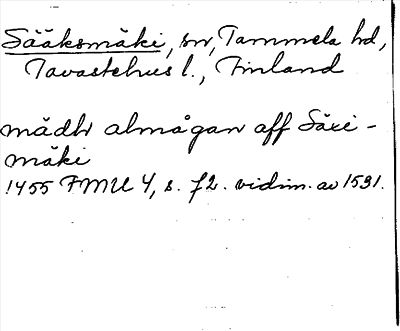 Sääksmäki, sn, Tammela hd,
Tavastehus l., Finland
mädhr almågan aff Säxi-
mäki
1455 FMU 4, s. 72. vidim. av 1531.